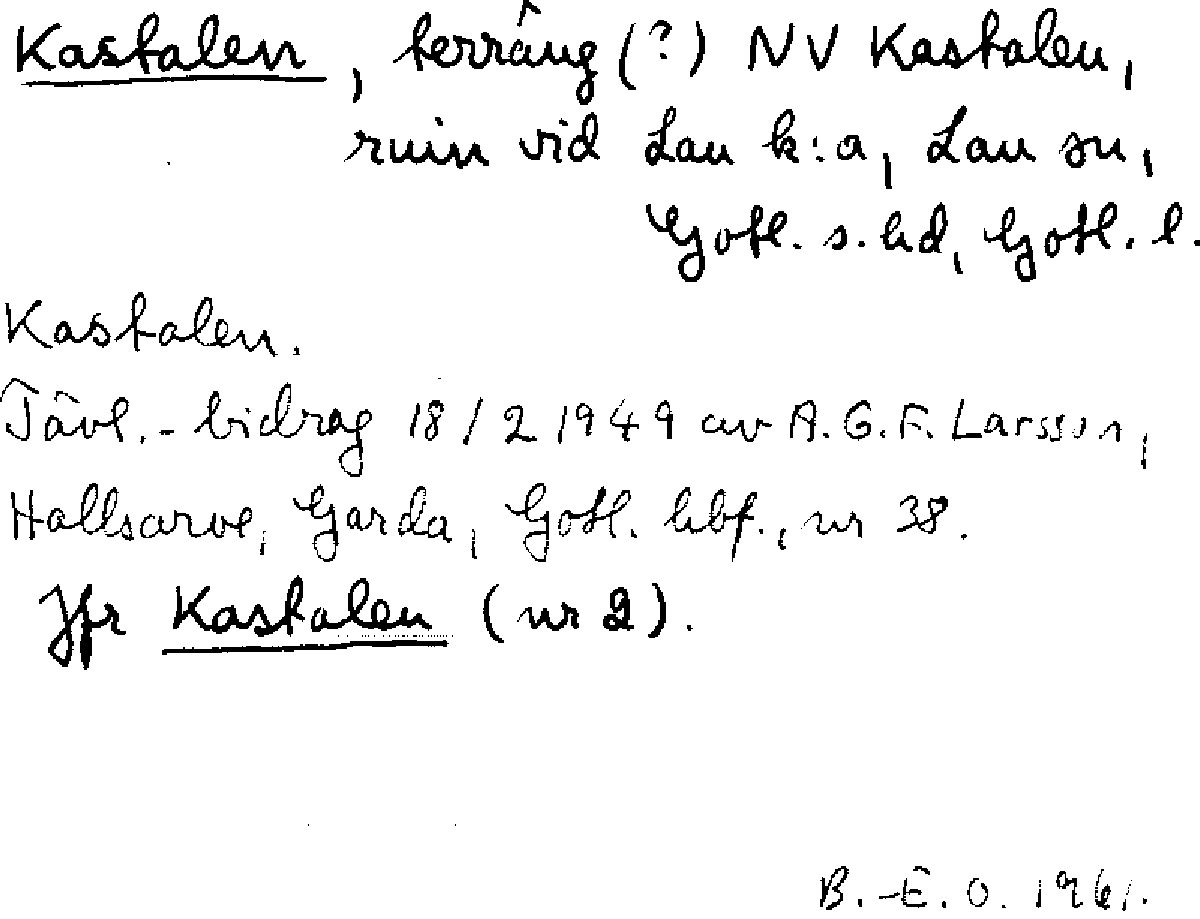 Kastalen, terräng (?) NV Kastalen,
ruin vid Lau k:a, Lau sn,
Gotl. s. hd, Gotl. l.
Kastalen.
Tävl.-bidrag 18/2 1949 av A.G.F. Larsson,
Hallsarve, Garda, Gotl. hbf., nr 38.
Jfr Kastalen (nr 2).
B.-E. O. 1961.